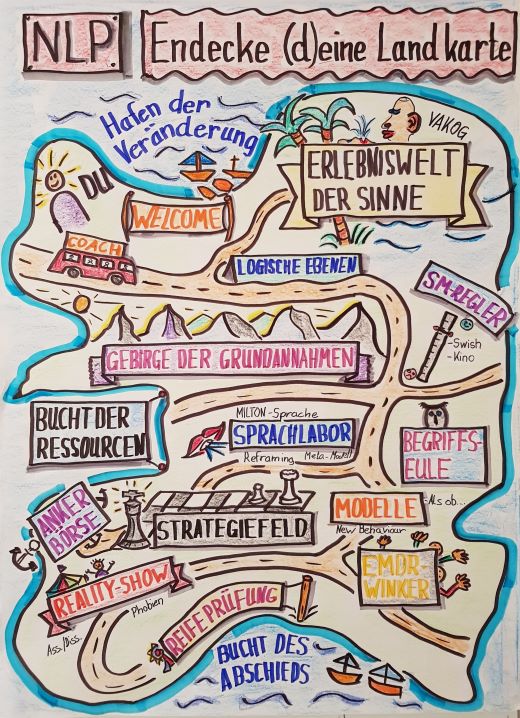 NLP
Endecke (d)eine Landkarte
Hafen der
Veränderung
DU
WELCOME
VAKOG
ERLEBNISWELT
DER SINNE
COACH
LOGISCHE EBENEN
SM-REGLER
-Swish
-Kino
GEBIRGE DER GRUNDANNAHMEN
BUCHT DER
RESSOURCEN
MILTON-Sprache
SPRACHLABOR
Reframing Meta-Modell
BEGRIFFS-
EULE
ANKER
BÖRSE
STRATEGIEFELD
MODELLE
-Als ob...
New Behaviour
EMDR-
WINKER
REALITY-SHOW
Phobien
Ass./Diss.
REIFEPRÜFUNG
BUCHT DES
ABSCHIEDS